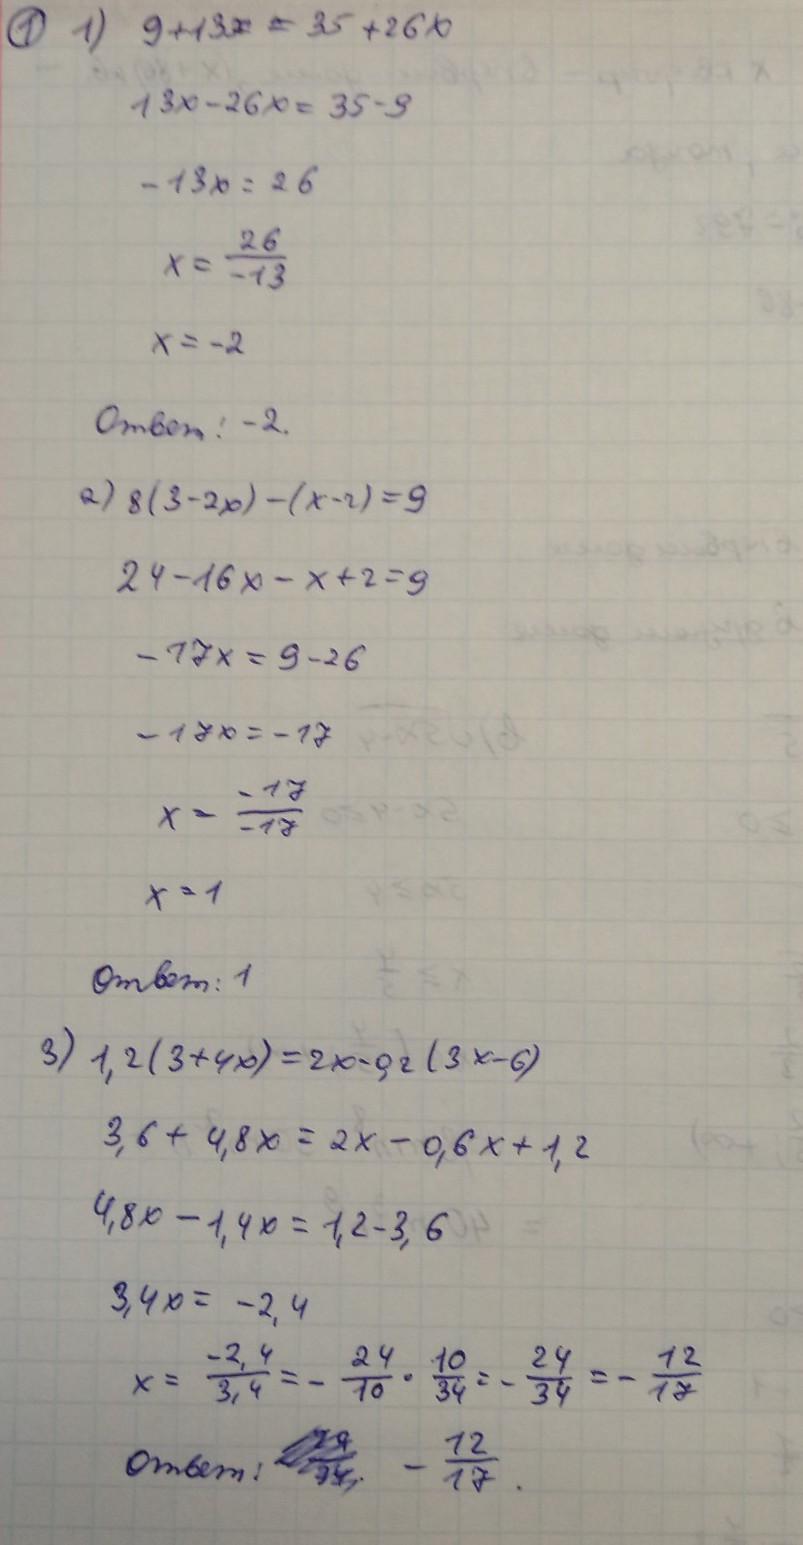 ① 1) 9+13x = 35+26x
13x-26x = 35-9
-13x = 26
x = 26/-13
x = -2
Ответ: -2.
2) 8(3-2x)-(x-2)=9
24-16x-x+2=9
-17x = 9-26
-17x = -17
x = -17/-17
x = 1
Ответ: 1
3) 1,2(3+4x)=2x-0,2(3x-6)
3,6+4,8x = 2x-0,6x+1,2
4,8x-1,4x = 1,2-3,6
3,4x = -2,4
x = -2,4/3,4 = - 24/10 · 10/34 = - 24/34 = - 12/17
Ответ: - 12/17.